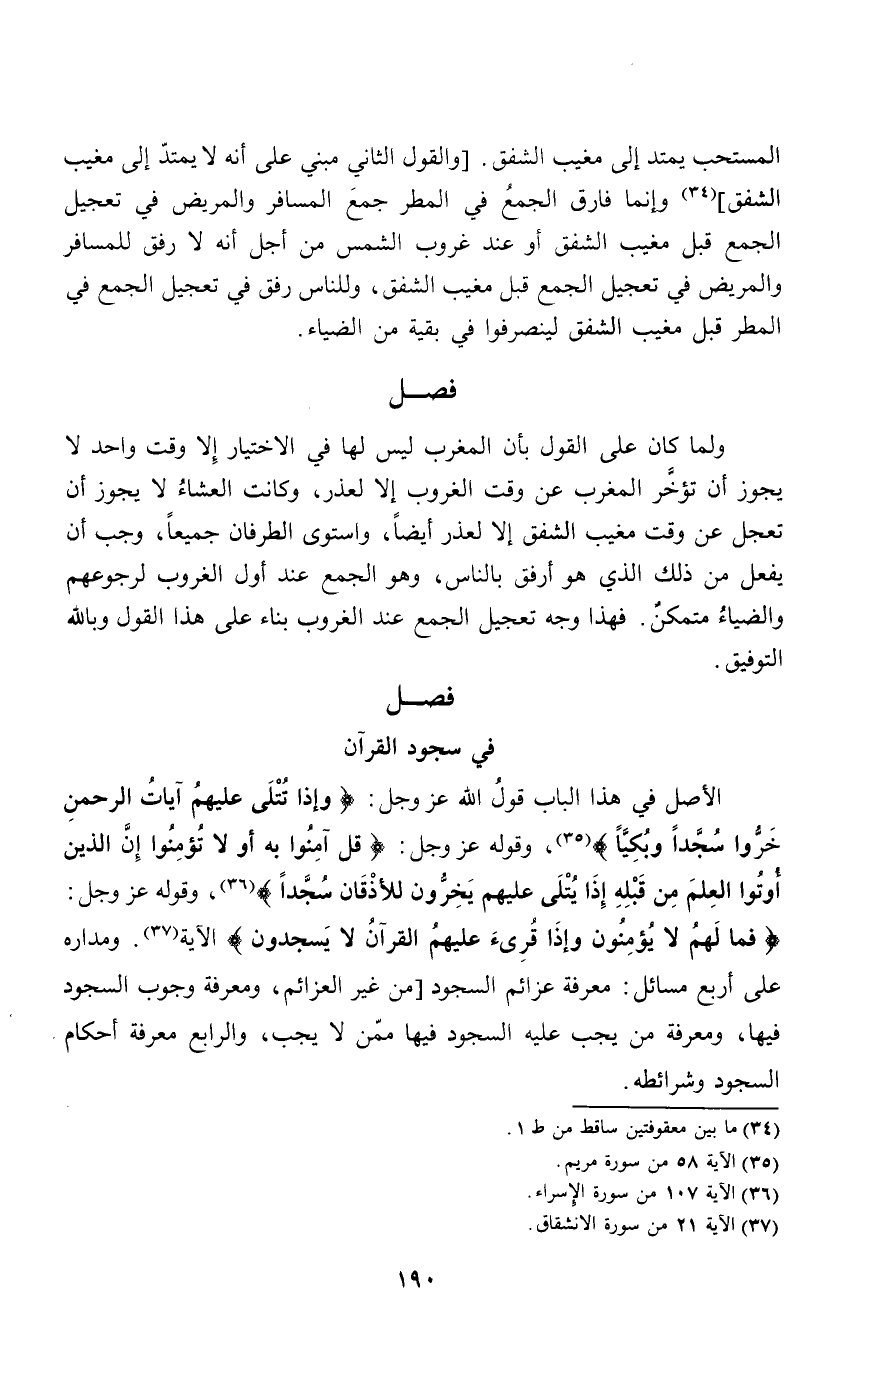 المستحب يمتد إلى مغيب الشفق. [والقول الثاني مبني على أنه لا يمتدّ إلى مغيب
الشفق](٣٤) وإنما فارق الجمعُ في المطر جمعَ المسافر والمريض في تعجيل
الجمع قبل مغيب الشفق أو عند غروب الشمس من أجل أنه لا رفق للمسافر
والمريض في تعجيل الجمع قبل مغيب الشفق، وللناس رفق في تعجيل الجمع في
المطر قبل مغيب الشفق لينصرفوا في بقية من الضياء.
فصــل
ولما كان على القول بأن المغرب ليس لها في الاختيار إلا وقت واحد لا
يجوز أن تؤخَّر المغرب عن وقت الغروب إلا لعذر، وكانت العشاءُ لا يجوز أن
تعجل عن وقت مغيب الشفق إلا لعذر أيضاً، واستوى الطرفان جميعاً، وجب أن
يفعل من ذلك الذي هو أرفق بالناس، وهو الجمع عند أول الغروب لرجوعهم
والضياءُ متمكنٌ. فهذا وجه تعجيل الجمع عند الغروب بناء على هذا القول وبالله
التوفيق.
فصــل
في سجود القرآن
الأصل في هذا الباب قولُ الله عز وجل: ﴿وإذا تُتْلَى عليهمُ آياتُ الرحمنِ
خَرُّوا سُجَّداً وبُكِيَّاً﴾(٣٥)، وقوله عز وجل: ﴿قل آمِنُوا به أو لا تُؤمِنُوا إنَّ الذين
أُوتُوا العِلمَ مِن قَبْلِهِ إذَا يُتْلَى عليهم يَخِرُّون للأذْقَان سُجَّداً﴾(٣٦)، وقوله عز وجل:
﴿فما لَهمُ لا يُؤمِنُون وإذَا قُرِىءَ عليهمُ القرآنُ لا يَسجدون﴾ الآية(٣٧). ومداره
على أربع مسائل: معرفة عزائم السجود [من غير العزائم، ومعرفة وجوب السجود
فيها، ومعرفة من يجب عليه السجود فيها ممّن لا يجب، والرابع معرفة أحكام
السجود وشرائطه.
(٣٤) ما بين معقوفتين ساقط من ط ١.
(٣٥) الآية ٥٨ من سورة مريم.
(٣٦) الآية ١٠٧ من سورة الإسراء.
(٣٧) الآية ٢١ من سورة الانشقاق.
١٩٠